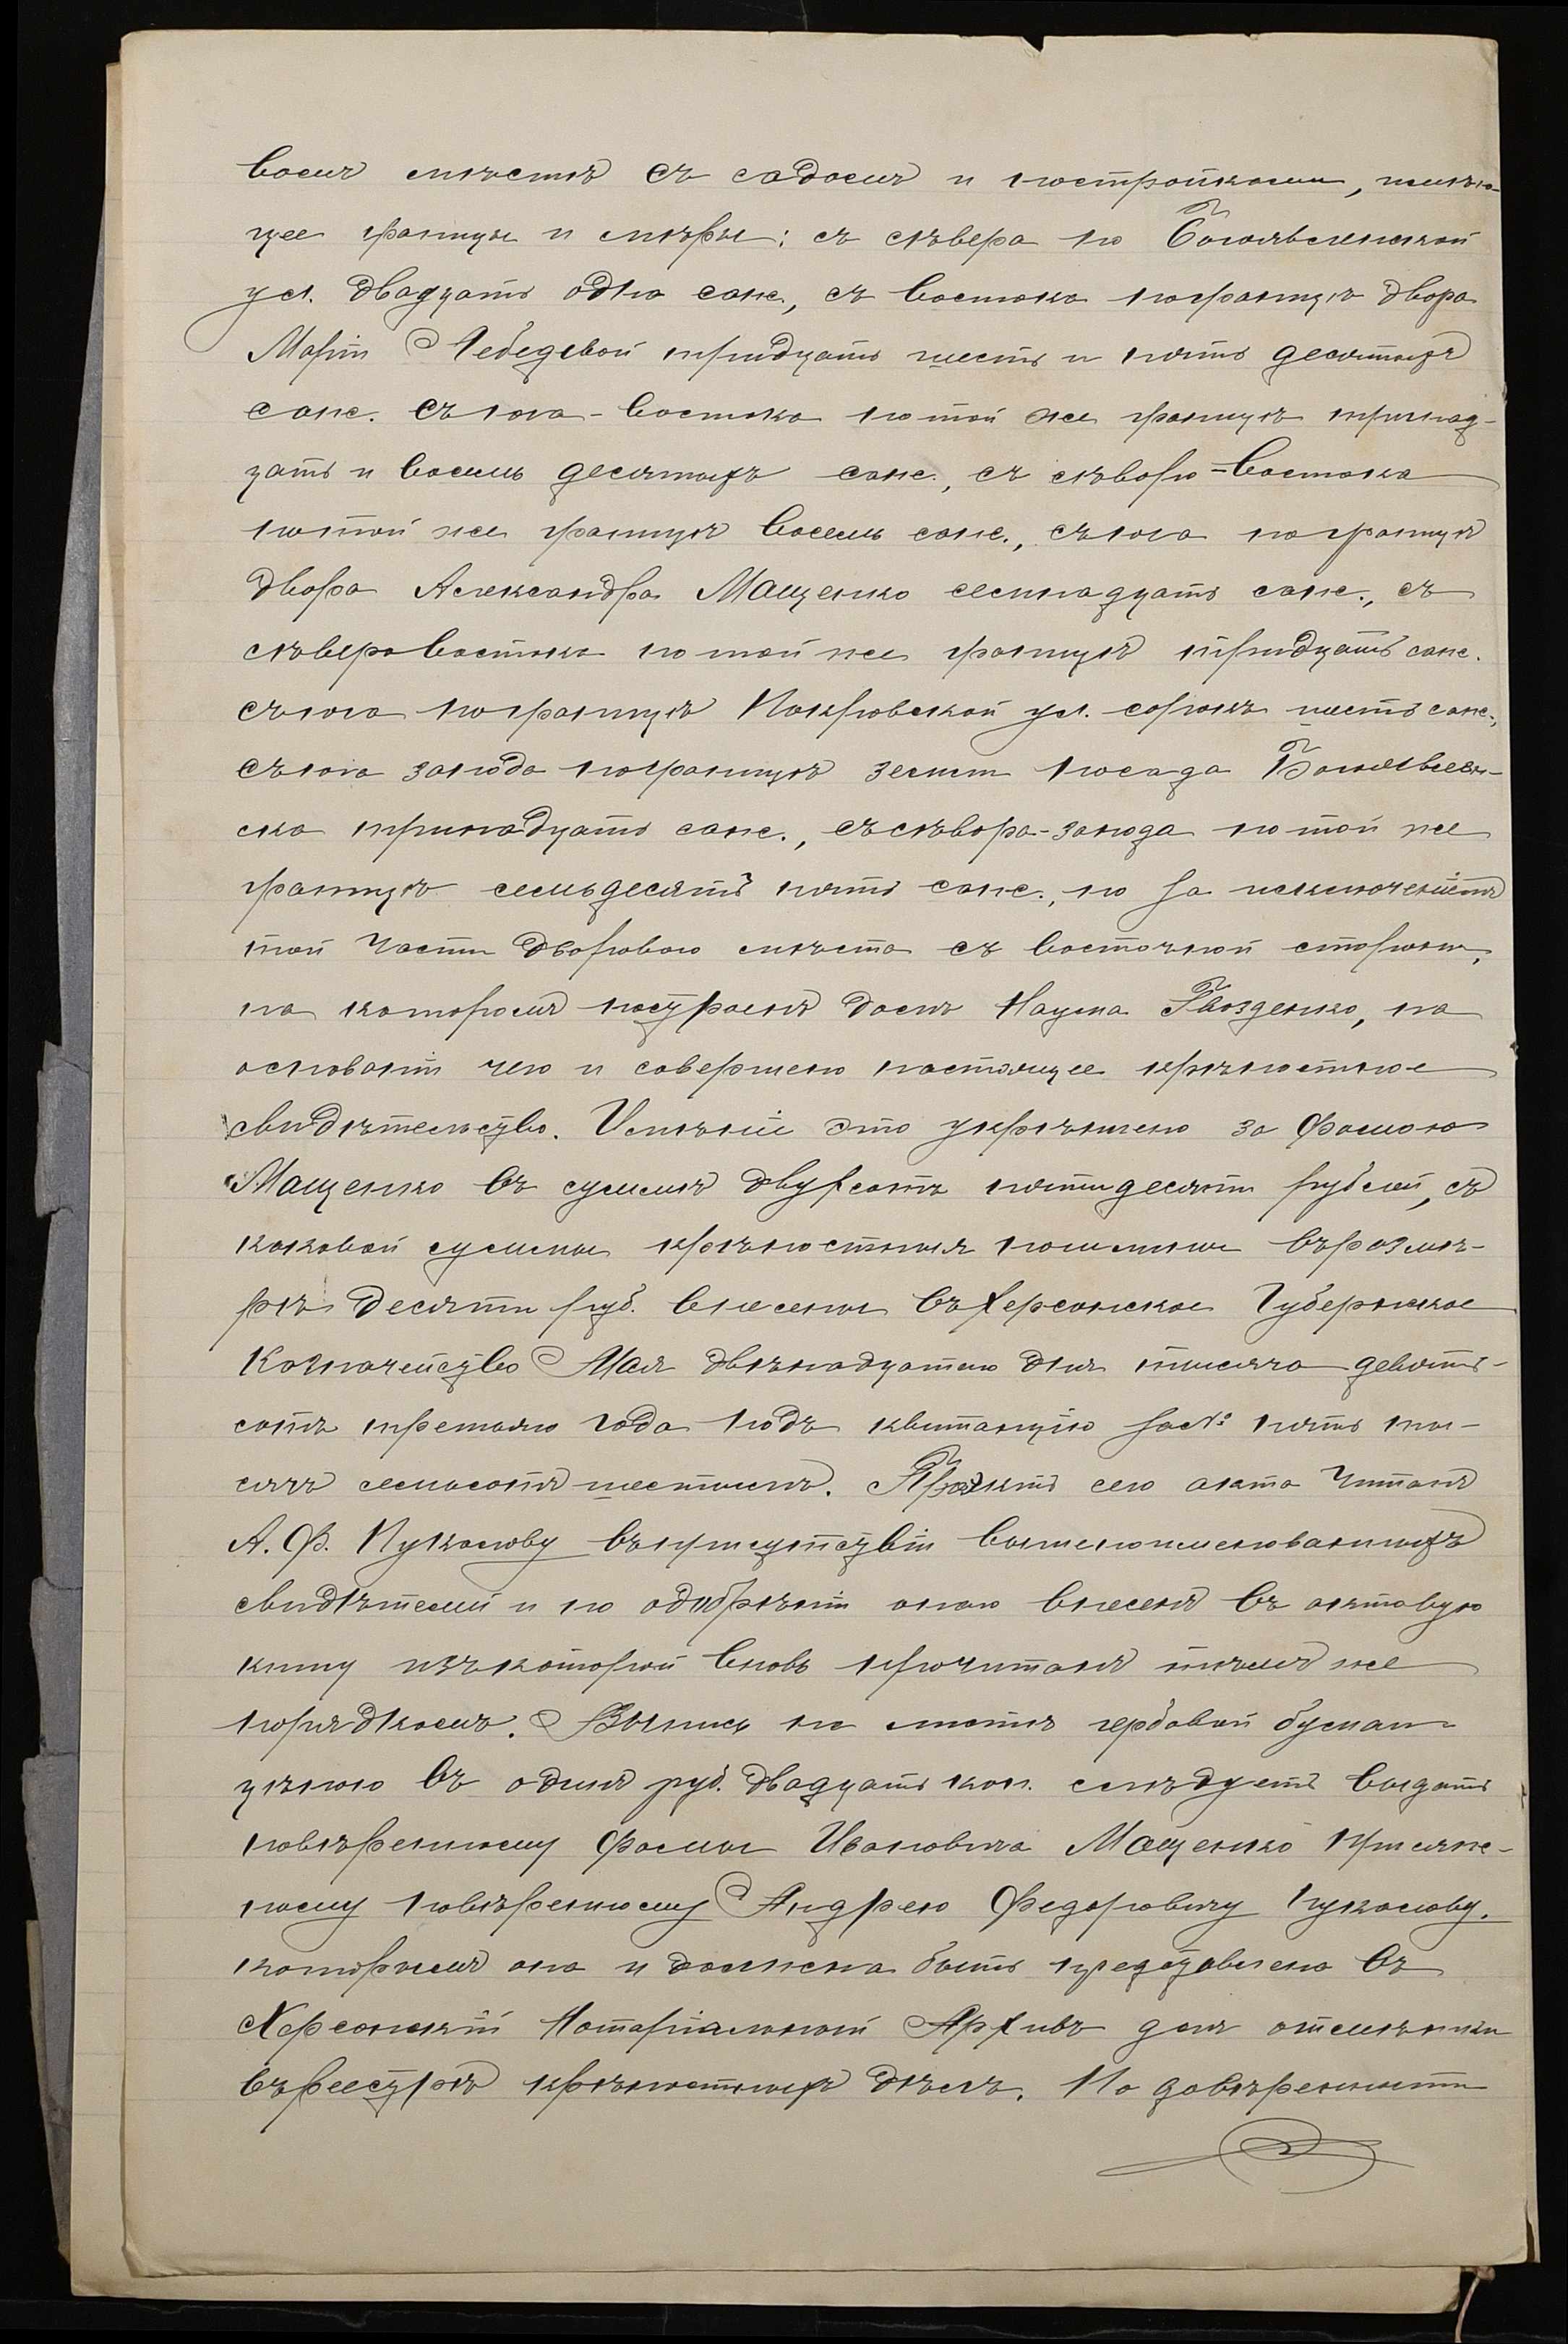 вомъ мѣстѣ съ садомъ и постройками, имѣю-
щее границы и мѣры: съ сѣвера по Богоявленской
ул. двадцать одна саж., съ востока по границѣ двора
Маріи Лебедевой тридцать шесть и пять десятыхъ
саж. съ юго-востока по той же границѣ тринад-
цать и восемь десятыхъ саж., съ сѣверо-востока
по той же границѣ восемь саж., съ юга по границѣ
двора Александра Мащенко семнадцать саж., съ
сѣверо востока по той же границѣ тридцать саж.
съ юга по границѣ Покровской ул. сорокъ шесть саж.,
съ юга запада по границѣ земли посада Богоявлен-
ска тринадцать саж., съ сѣвера-запада по той же
границѣ семьдесятъ пять саж., но за исключеніемъ
той части дворового мѣста съ восточной стороны,
на которомъ построенъ домъ Наума Гвозденко, на
основаніи чего и совершено настоящее крѣпостное
свидѣтельство. Имѣніе это укрѣплено за Фомою
Мащенко въ суммѣ двухсотъ пятидесяти рублей, съ
каковой суммы крѣпостныя пошлины въ размѣ-
рѣ десяти руб. внесены въ Херсонское Губернское
Казначейство Мая двѣнадцатаго дня тысяча девять-
сотъ третьяго года подъ квитанцію за № пять ты-
сячъ семьсотъ шестымъ. Проектъ сего акта читанъ
А. Ф. Пукалову въ присутствіи вышепоименованныхъ
свидѣтелей и по одобреніи онаго внесенъ въ актовую
книгу изъ которой вновь прочитанъ тѣмъ же
порядкомъ. Выпись на листѣ гербовой бумаги
цѣною въ одинъ руб. двадцать коп. слѣдуетъ выдать
повѣренному Фомы Ивановича Мащенко присяж-
ному повѣренному Андрею Федоровичу Пукалову,
которымъ она и должна быть представлена въ
Херсонскій Нотаріальный Архивъ для отмѣтки
въ реестрѣ крѣпостныхъ дѣлъ. По довѣренности